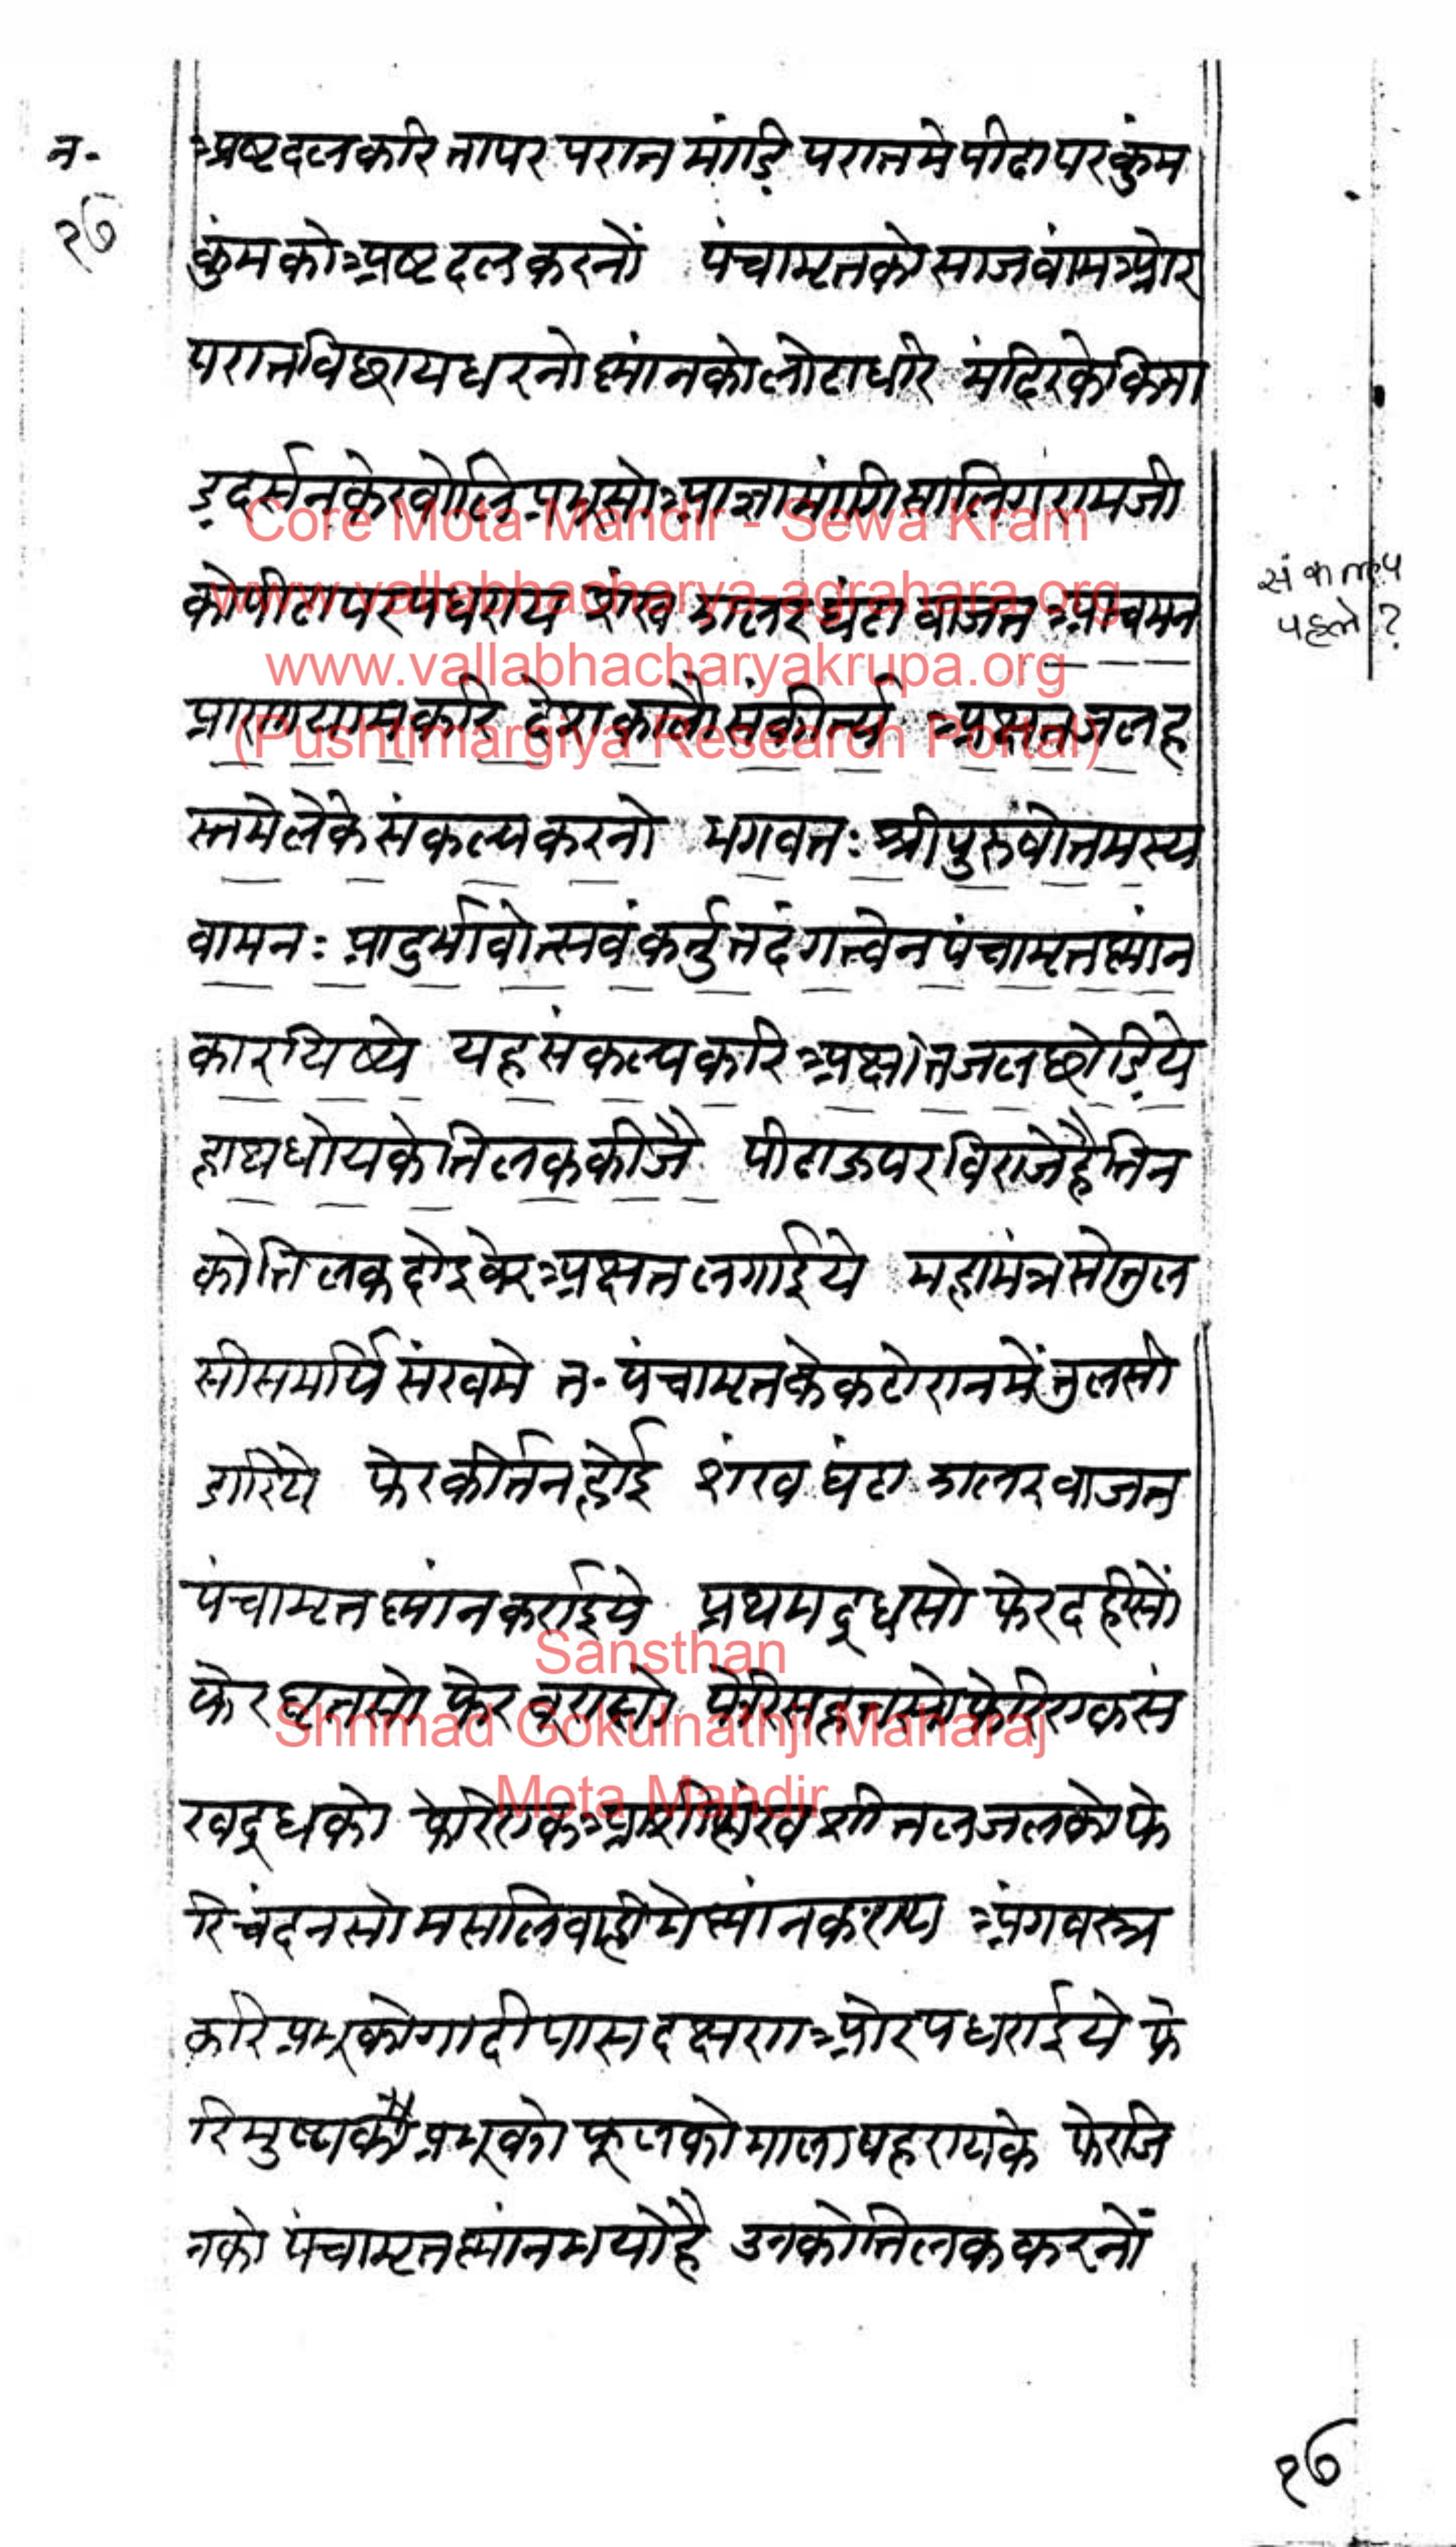 न॰
१७
अष्टदल करि तापर परात मांडि परातमे पीढा पर कुंम
कुंम को अष्टदल करनों पंचामृतको साज वांम ओर
परात विछाय धरनो स्नांनको लोटा धरि मंदिरके किमा
ड दर्सनके खोलि प्रभुसो आज्ञा मांगि सालिगरामजी
को पीढा पर पधराय शंख झालर घंटा वाजत आचमन
प्राणायाम करि देशकालौ संकीर्त्य अक्षत जल ह
स्तमे लेके संकल्प करनो भगवतः श्रीपुरुषोत्तमस्य
वामनः प्रादुर्भावोत्सवं कर्तुं तदंगत्वेन पंचामृतस्नांन
कारयिष्ये यह संकल्प करि अक्षत जल छोडिये
हाथ धोयके तिलक कीजै पीढा ऊपर विराजेहै तिन
को तिलक दोइ वेर अक्षत लगाईये महामंत्रसे तुल
सी समर्पि संखमे त॰ पंचामृतके कटोरानमें तुलसी
डारिये फेर कीर्तन होई शंख घंटा झालर वाजत
पंचामृत स्नांन कराइये प्रथम दूधसो फेर दहीसों
फेर घृतसो फेर बूरासो फेरि सहतसो फेरि एक सं
ख दूधको फेरि एक शंख शीतल जलको फे
रि चंदनसो मसलि स्नांन कराय अंगवस्त्र
करि प्रभुको गादी पास दक्षण ओर पधराईये फे
रि मुख्य प्रभुको फूलकी माला पहरायके फेर जि
नको पंचामृत स्नांन भयोहै उनको तिलक करनों
संकल्प
पहले ?
१७
Core Mota Mandir - Sewa Kram
www.vallabhacharya-agrahara.org
www.vallabhacharyakrupa.org
(Pushtimargiya Research Portal)
Sansthan
Shrimad Gokulnathji Maharaj
Mota Mandir